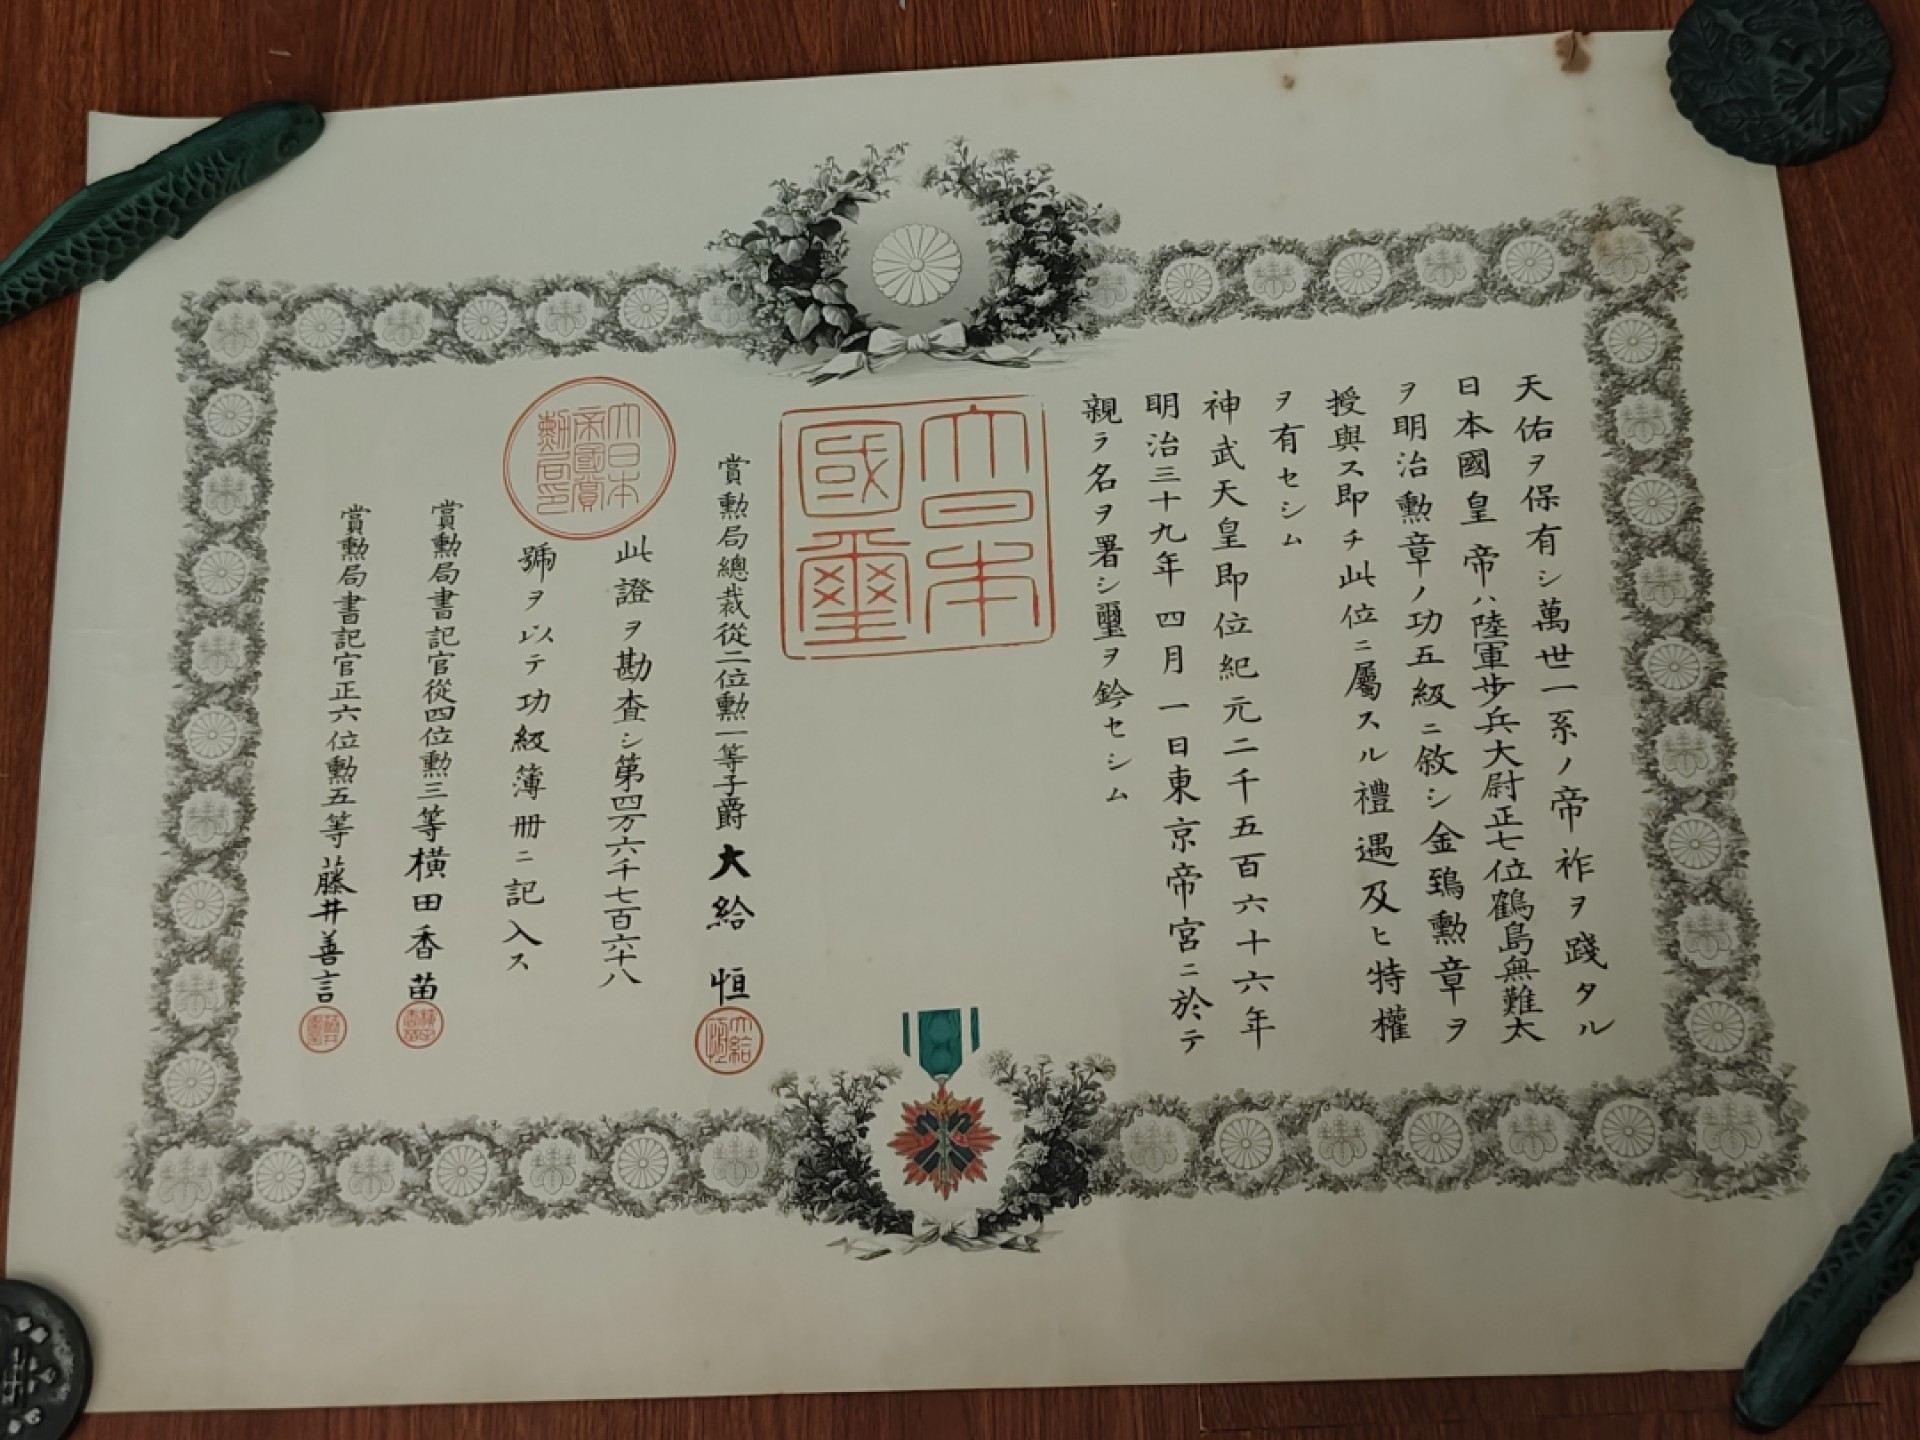 天佑ヲ保有シ萬世一系ノ帝祚ヲ踐タル
日本國皇帝ハ陸軍歩兵大尉正七位鶴島無難太
ヲ明治勲章ノ功五級ニ敘シ金鵄勲章ヲ
授與ス即チ此位ニ屬スル禮遇及ヒ特權
ヲ有セシム
神武天皇即位紀元二千五百六十六年
明治三十九年四月一日東京帝宮ニ於テ
親ラ名ヲ署シ璽ヲ鈐セシム
大日本
國璽
賞勲局總裁從二位勲一等子爵大給恒
大給恒
此證ヲ勘査シ第四万六千七百六十八
號ヲ以テ功級簿冊ニ記入ス
大日本
帝國賞
勲局印
賞勲局書記官從四位勲三等横田香苗
賞勲局書記官正六位勲五等藤井善言